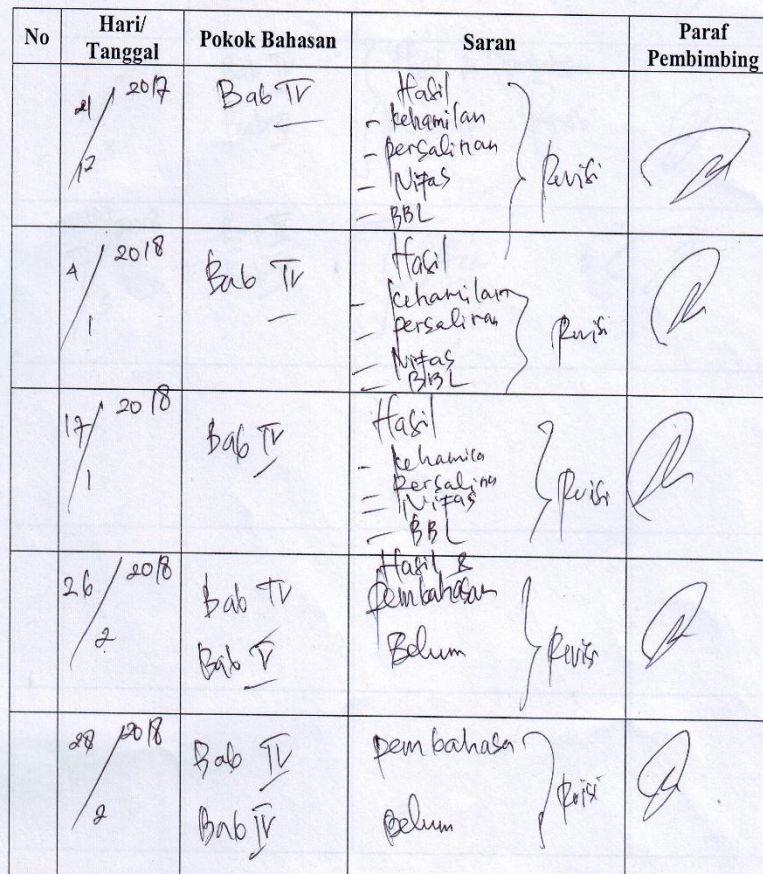 No Hari/ Tanggal Pokok Bahasan Saran Paraf Pembimbing
21/12 2017 Bab IV Hasil
- kehamilan
- persalinan
- Nifas
- BBL
Revisi
4/1 2018 Bab IV Hasil
- kehamilan
- persalinan
- Nifas
- BBL
Revisi
17/1 2018 Bab IV Hasil
- kehamila
- persalina
- Nifas
- BBL
Revisi
26/2 2018 Bab IV Hasil &
pembahasan
Bab V Belum
Revisi
28/2 2018 Bab IV pembahasa
Bab IV Belum
Revisi